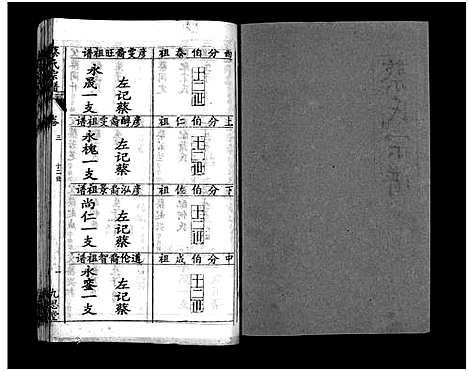 西分伯泰祖
十二世
彦雯裔旺祖谱
左记蔡
永晟一支
上分伯仁祖
十二世
彦醇裔雯祖谱
左记蔡
永槐一支
下分伯佐祖
十二世
彦泓裔景祖谱
左记蔡
尚仁一支
中分伯成祖
十二世
道伦裔智祖谱
左记蔡
永銮一支
蔡氏宗谱
卷三
十二世
一
九思堂